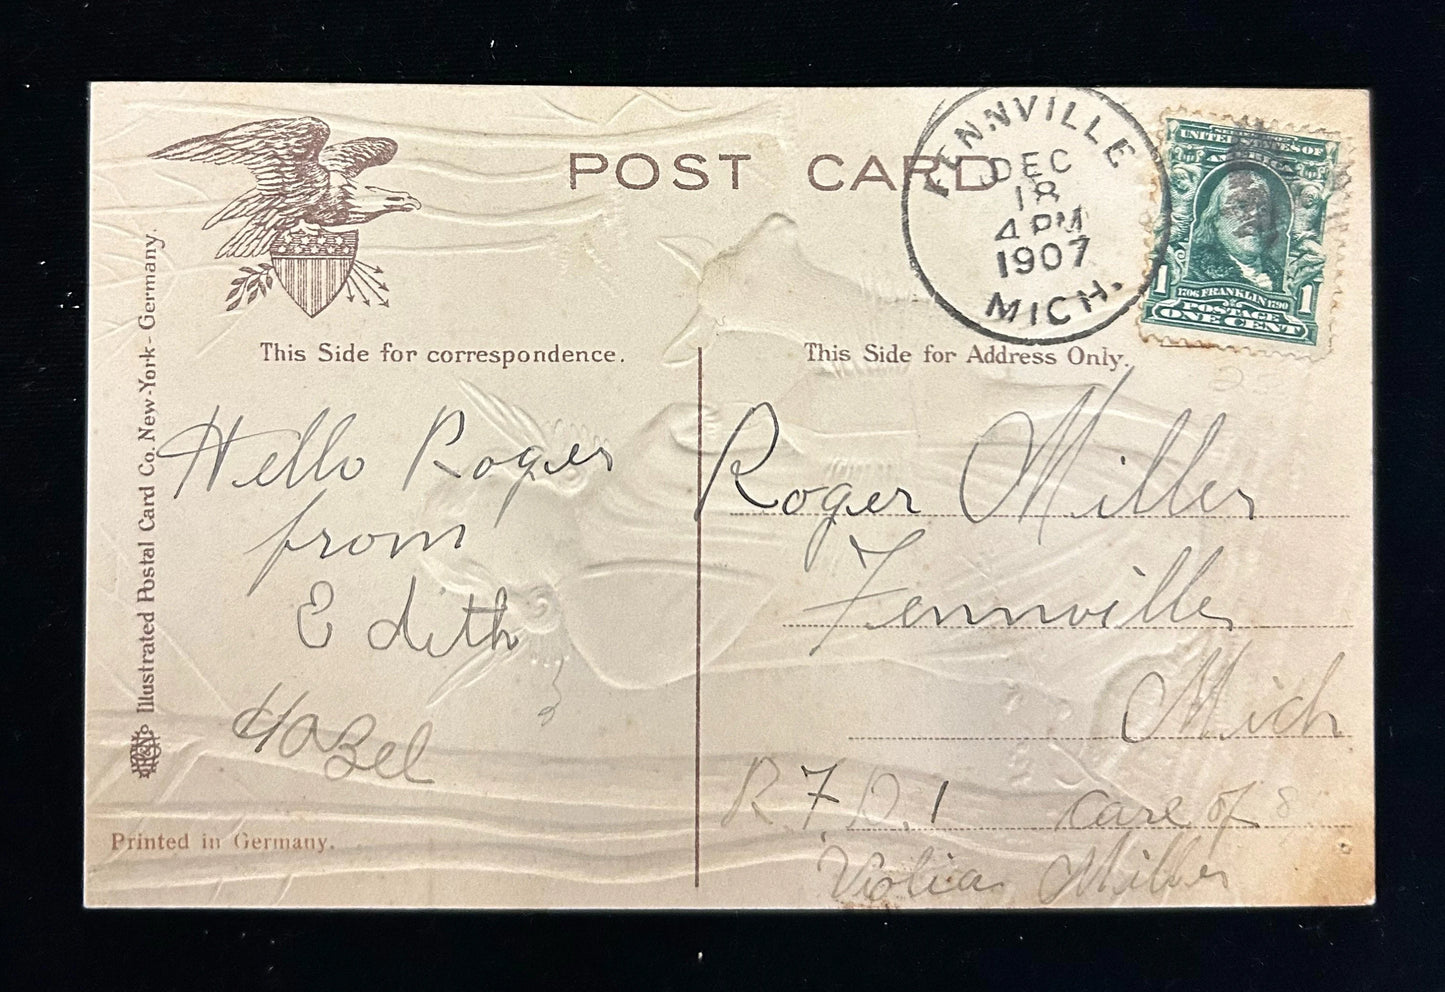 POST CARD
FENNVILLE
DEC
18
4 PM
1907
MICH.
UNITED STATES OF
AMERICA
1706 FRANKLIN 1790
1 1
POSTAGE
ONE CENT
This Side for correspondence.
This Side for Address Only.
Hello Roger
from
Edith
Hazel
Roger Miller
Fennville
Mich
R.F.D. 1 care of
Miller
Illustrated Postal Card Co. New-York - Germany.
Printed in Germany.